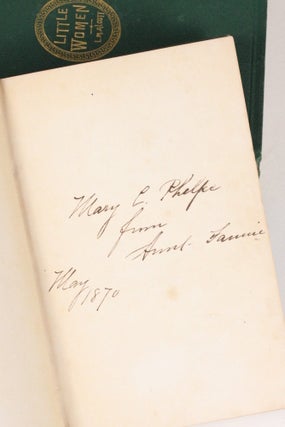 LITTLE
WOMEN
L.M. ALCOTT
Mary C. Phelps
from
Aunt Fannie
May
1870